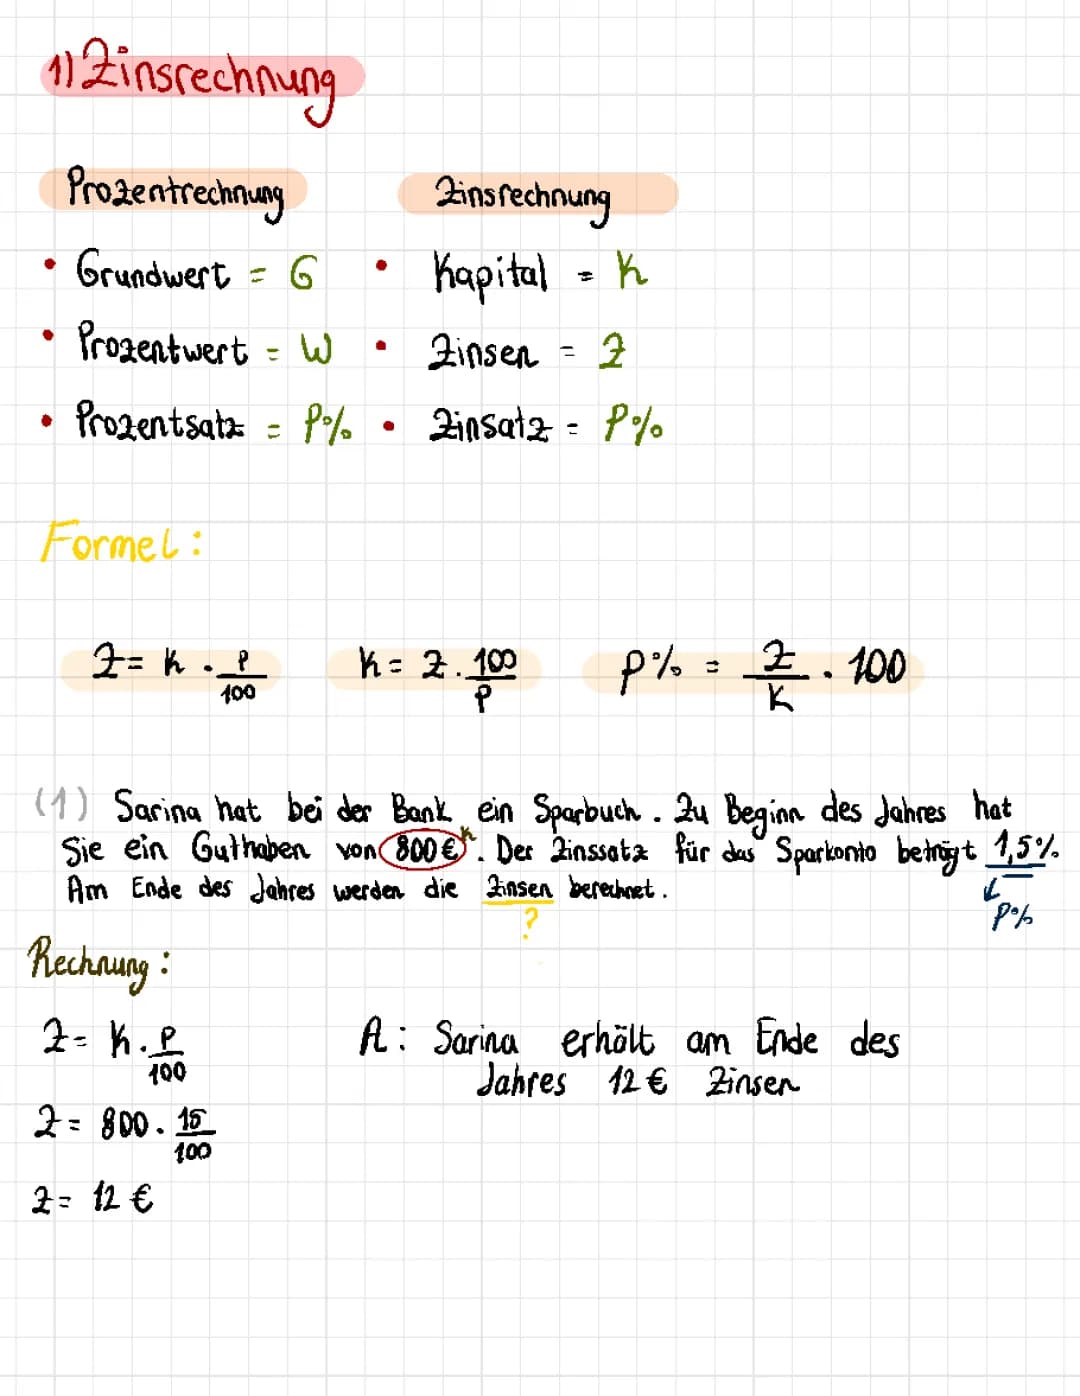 1) Zinsrechnung
Prozentrechnung Zinsrechnung
• Grundwert = G • Kapital = K
• Prozentwert = W • Zinsen = Z
• Prozentsatz = P% • Zinsatz = P%
Formel:
Z = K · P/100 K = Z · 100/P P% = Z/K · 100
(1) Sarina hat bei der Bank ein Sparbuch. Zu Beginn des Jahres hat
Sie ein Guthaben von 800 € K. Der Zinssatz für das Sparkonto beträgt 1,5%.
Am Ende des Jahres werden die Zinsen berechnet.
? P%
Rechnung:
Z = K · P/100 A: Sarina erhält am Ende des
Jahres 12 € Zinsen
Z = 800 · 15/100
Z = 12 €